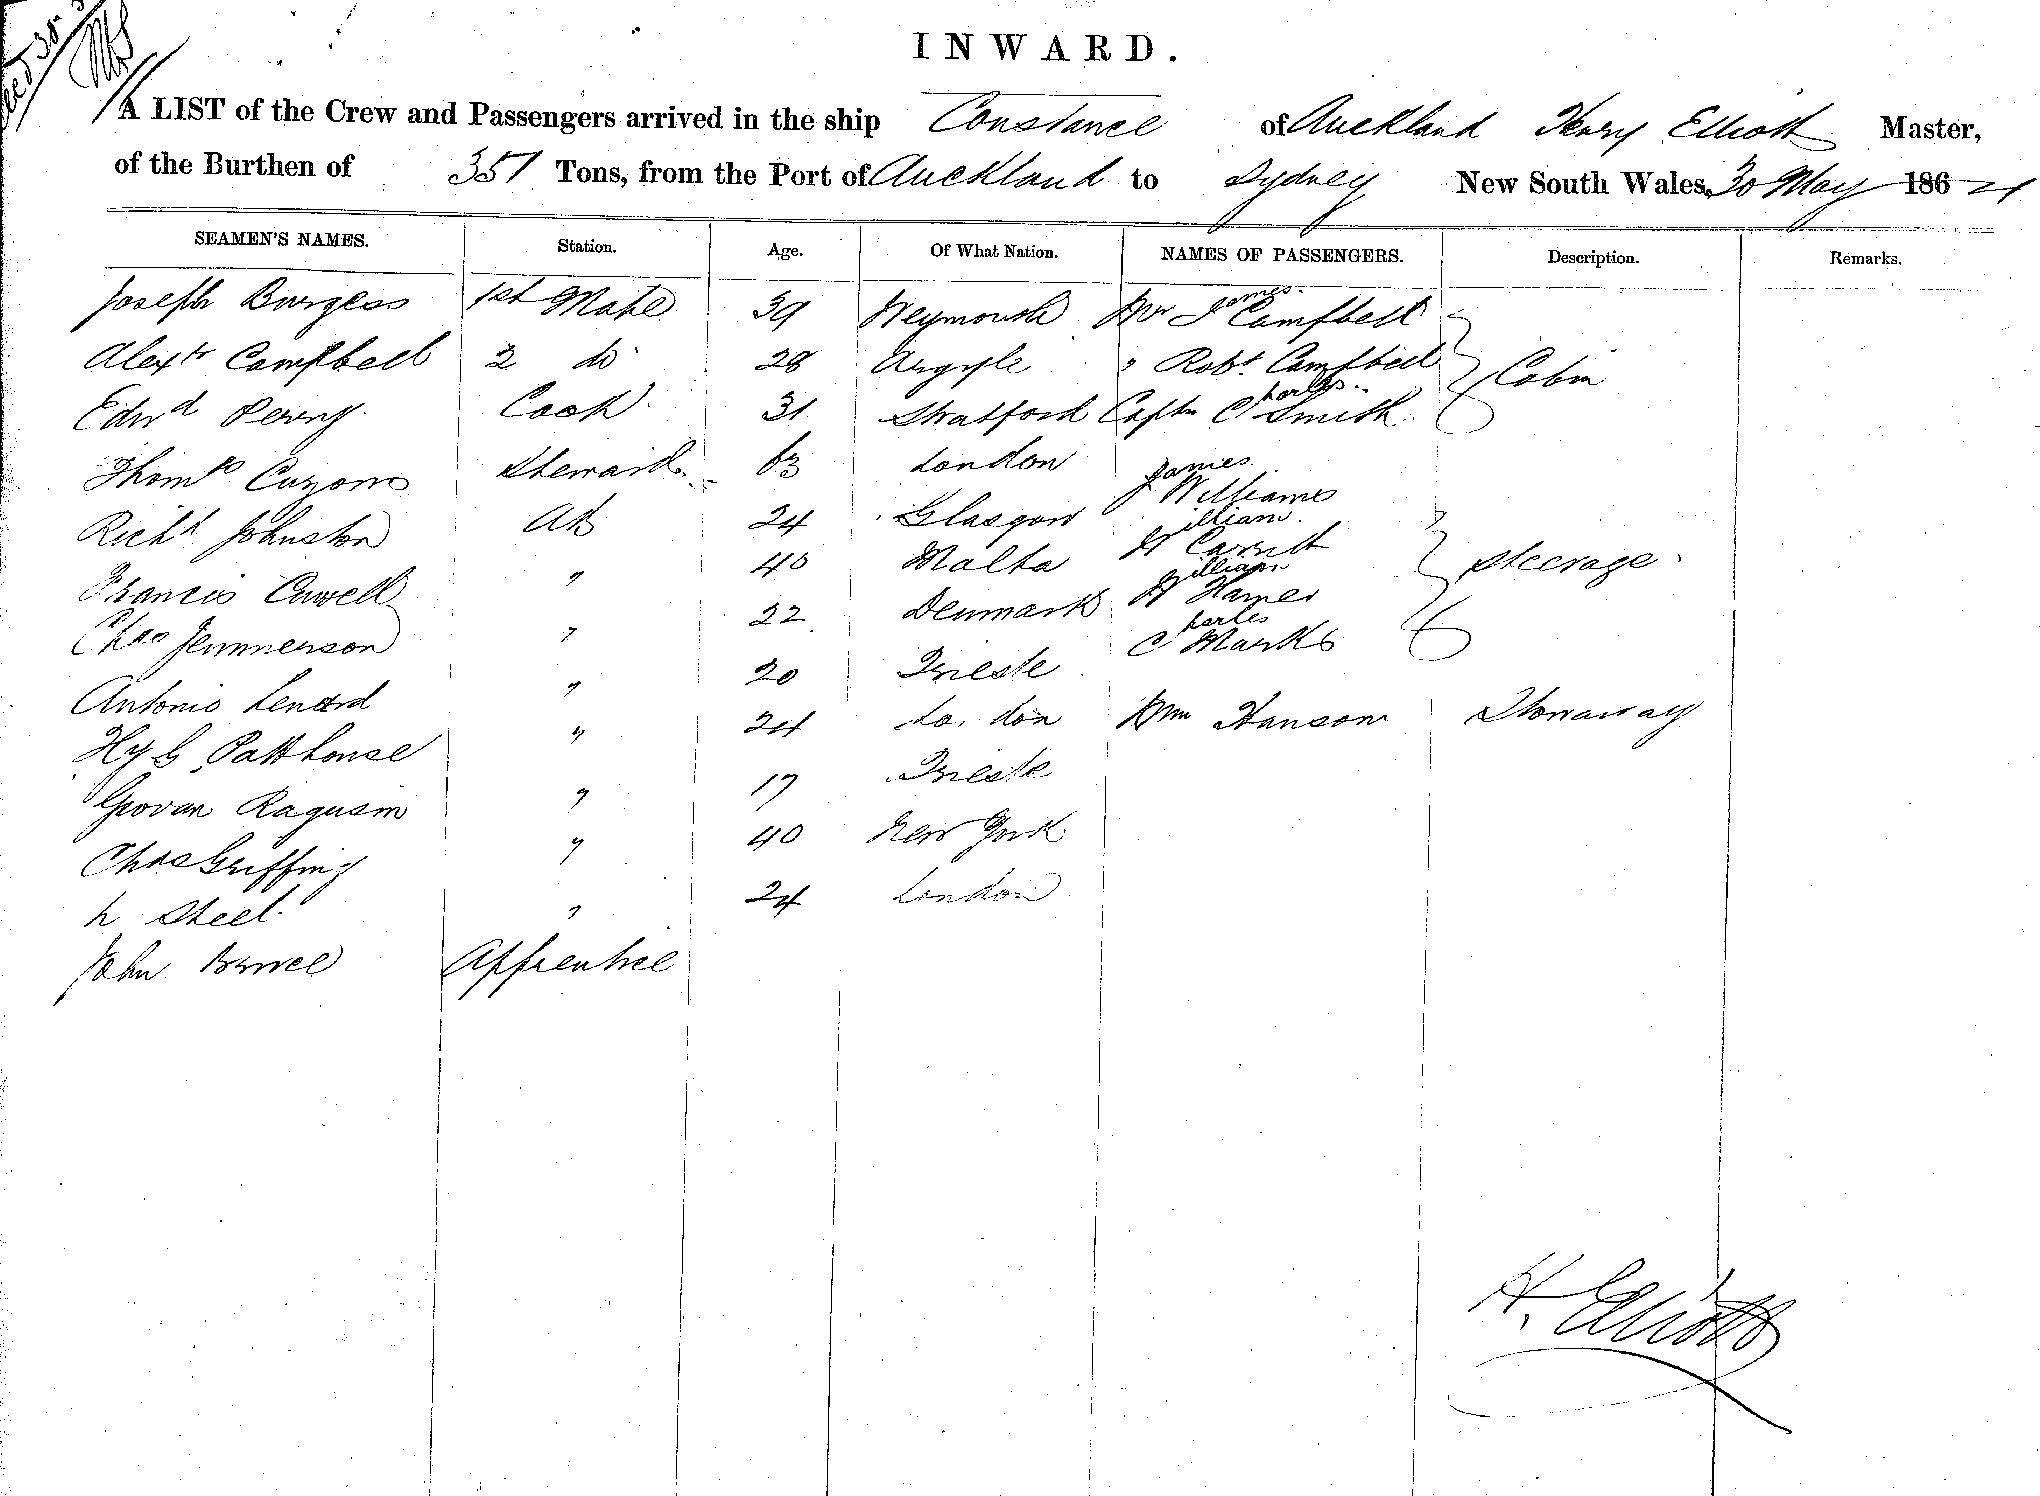 INWARD.
A LIST of the Crew and Passengers arrived in the ship Constance of Auckland Henry Elliott Master,
of the Burthen of 351 Tons, from the Port of Auckland to Sydney New South Wales, 30 May 1864
SEAMEN'S NAMES. Station. Age. Of What Nation. NAMES OF PASSENGERS. Description. Remarks.
Joseph Burgess 1st Mate 39 Weymouth Mr James Campbell
Alexr Campbell 2 do 28 Argyle " Robt Campbell Cabin
Edwd Perry Cook 31 Stratford Captn Charles Smith
Thoms Curzons Steward 63 London James Williams
Richd Johnston AB 24 Glasgow William
Francis " 40 Malta William Hames Steerage
Chas Jennnerson " 22 Denmark Charles Marks
Antonio Lenard " 20 Trieste
Hy G Patthouse " 24 London Wm Hanson Stowaway
Giovan Ragusin " 17 Trieste
Chas Griffing " 40 New York
h Steel " 24 London
John Apprentice
H. Elliott